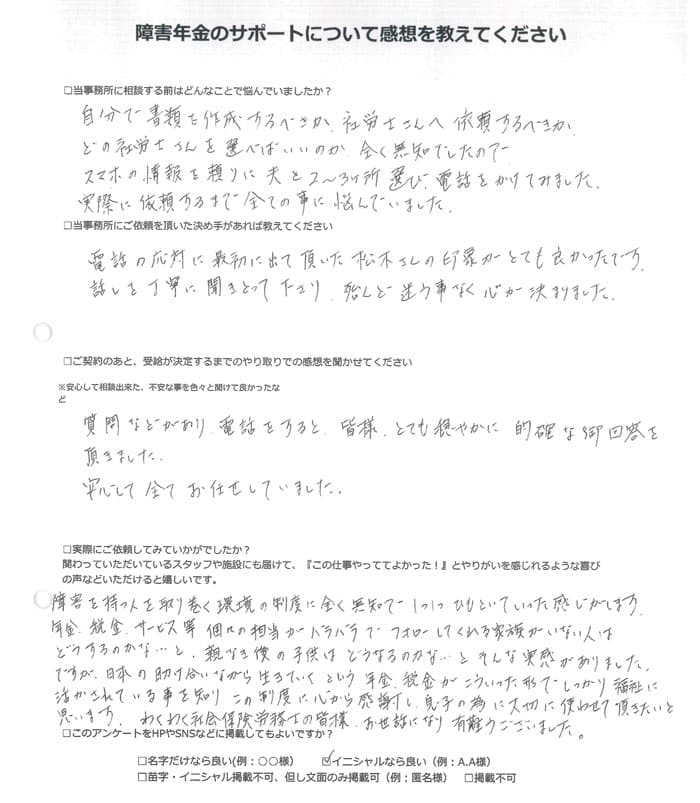 障害年金のサポートについて感想を教えてください
□当事務所に相談する前はどんなことで悩んでいましたか？
自分で書類を作成するべきか、社労士さんへ依頼するべきか、
どの社労士さんを選べばいいのか、全く無知でしたので
スマホの情報を頼りに夫と2〜3ヶ所選び、電話をかけてみました。
実際に依頼するまで全ての事に悩んでいました。
□当事務所にご依頼を頂いた決め手があれば教えてください
電話の応対に最初に出て頂いた松木さんの印象がとても良かったです。
話しを丁寧に聞きとって下さり、殆んど迷う事なく心が決まりました。
□ご契約のあと、受給が決定するまでのやり取りでの感想を聞かせてください
※安心して相談出来た、不安な事を色々と聞けて良かったな
ど
質問などがあり、電話をすると、皆様、とても穏やかに的確な御回答を
頂きました。
安心して全てお任せしていました。
□実際にご依頼してみていかがでしたか？
関わっていただいているスタッフや施設にも届けて、『この仕事やっててよかった！』とやりがいを感じれるような喜び
の声などいただけると嬉しいです。
障害を持つ人を取り巻く環境の制度に全く無知で1つ1つひもといていった感じがします。
年金、税金、サービス等個々の担当がバラバラでフォローしてくれる家族がいない人は
どうするのかな…と、親なき後の子供はどうなるのかな…とそんな実感がありました。
ですが、日本の助け合いながら生きていくという年金、税金がこういった形でしっかり福祉に
活かされている事を知り、この制度に心から感謝し、息子の為に大切に使わせて頂きたいと
思います。わくわく社会保険労務士の皆様、お世話になり有難うございました。
□このアンケートをHPやSNSなどに掲載してもよいですか？
□名字だけなら良い(例：○○様）　☑イニシャルなら良い（例：A.A様）
□苗字・イニシャル掲載不可、但し文面のみ掲載可（例：匿名様）　□掲載不可